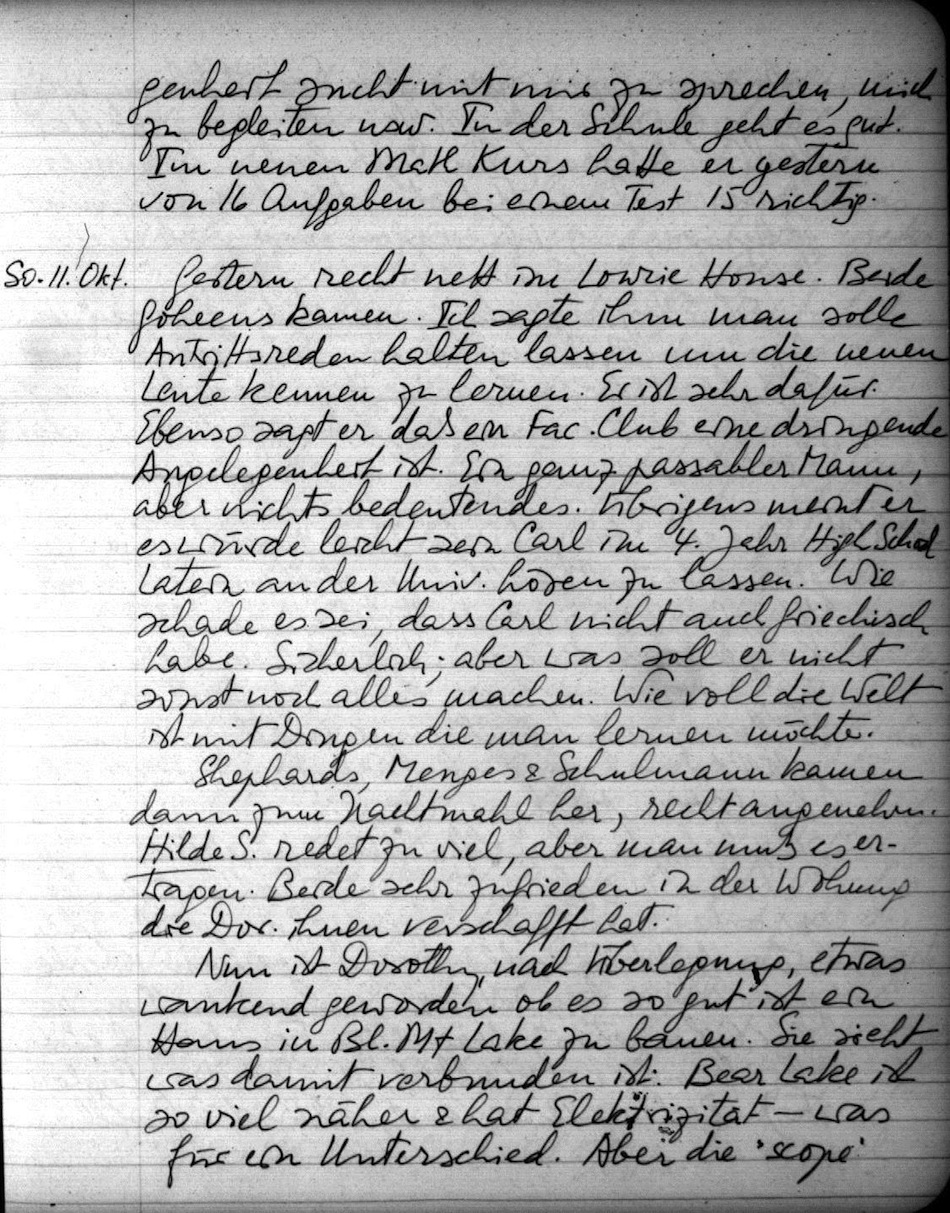 genheit sucht mit mir zu sprechen, mich
zu begleiten usw. In der Schule geht es gut.
Im neuen Math Kurs hatte er gestern
von 16 Aufgaben bei einem Test 15 richtig.
So. 11. Okt. Gestern recht nett im Lowrie House. Beide
Goheens kamen. Ich sagte ihm man solle
Antrittsreden halten lassen um die neuen
Leute kennen zu lernen. Er ist sehr dafür.
Ebenso sagt er daß ein Fac. Club eine dringende
Angelegenheit ist. Ein ganz passabler Mann,
aber nichts bedeutendes. Übrigens meint er
es würde leicht sein Carl im 4. Jahr High School
Latein an der Univ. hören zu lassen. Wie
schade es sei, dass Carl nicht auch griechisch
habe. Sicherlich; aber was soll er nicht
sonst noch alles machen. Wie voll die Welt
ist mit Dingen die man lernen möchte.
Shephards, Menges & Schulmann kamen
dann zum Nachtmahl her, recht angenehm.
Hilde S. redet zu viel, aber man muß es er-
tragen. Beide sehr zufrieden in der Wohnung
die Dor. ihnen verschafft hat.
Nun ist Dorothy, nach Überlegung, etwas
wankend geworden ob es so gut ist ein
Haus in Bl. Mt Lake zu bauen. Sie sieht
was damit verbunden ist. Bear Lake ist
so viel näher & hat Elektrizität — was
für ein Unterschied. Aber die 'scope'